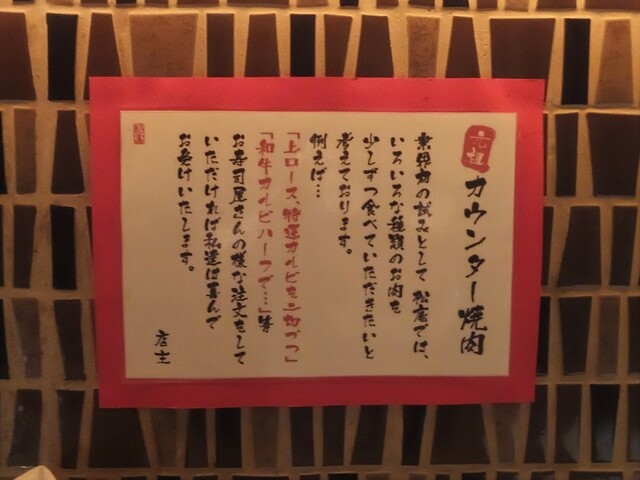 元祖
カウンター焼肉
業界初の試みとして 松庵では、
いろいろな種類のお肉を
少しずつ食べていただきたいと
考えております。
例えば…
「上ロース、特選カルビを三切づつ」
「和牛カルビハーフで…」等
お寿司屋さんの様な注文をして
いただければ私達は喜んで
お受けいたします。
店主